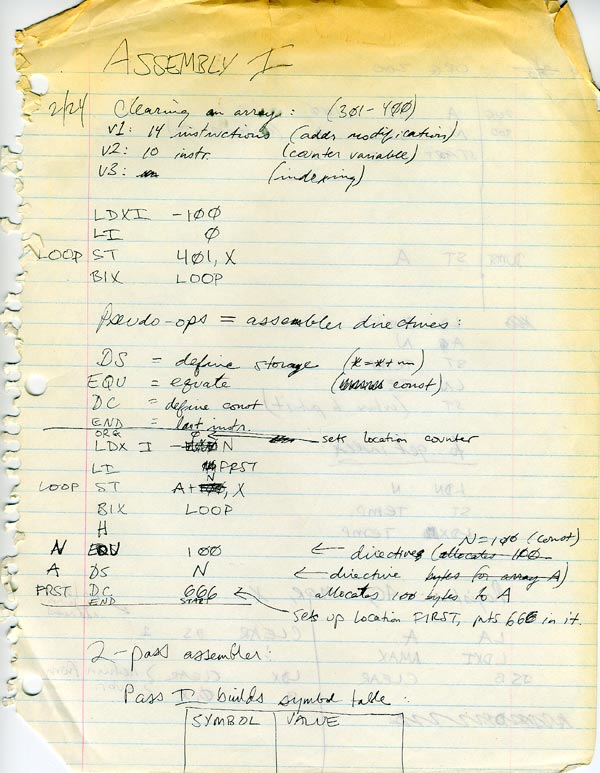 ASSEMBLY I
2/24 Clearing an array: (301-400)
V1: 14 instructions (adds modification)
V2: 10 instr. (counter variable)
V3: (indexing)
LDXI -100
LI 0
LOOP ST 401, X
BIX LOOP
Pseudo-ops = assembler directives:
DS = define storage (*=*+n)
EQU = equate (const)
DC = define const
END = last instr.
ORG 0 ← sets location counter
LDX I N
LI FRST
LOOP ST A+N, X
BIX LOOP
H
N EQU 100 ← directive N=100 (const)
A DS N ← directive (allocates 100 bytes for array A)
FRST DC 666 ← allocates 100 bytes to A
END START
sets up location FIRST, puts 666 in it.
2-pass assembler:
Pass I builds symbol table:
SYMBOL VALUE